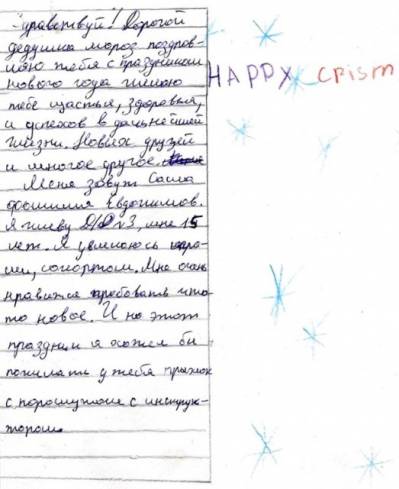 Здравствуй! Дорогой
дедушка мороз поздров-
ляю тебя с праздником
нового года желаю
тебе щастья, здоровья,
и успехов в дальнейшей
жизни. Новых друзей
и многое другое.
Меня зовут Саша
фамилия Евдокимов.
Я живу Д/Д №3, мне 15
лет. Я увлекаюсь
спортом. Мне очень
нравится пребовать что-
то новое. И на этот
праздник я хотел би
пожилать у тебя прыжок
с парошутом с инструк-
тором.
HAPPY CRISM